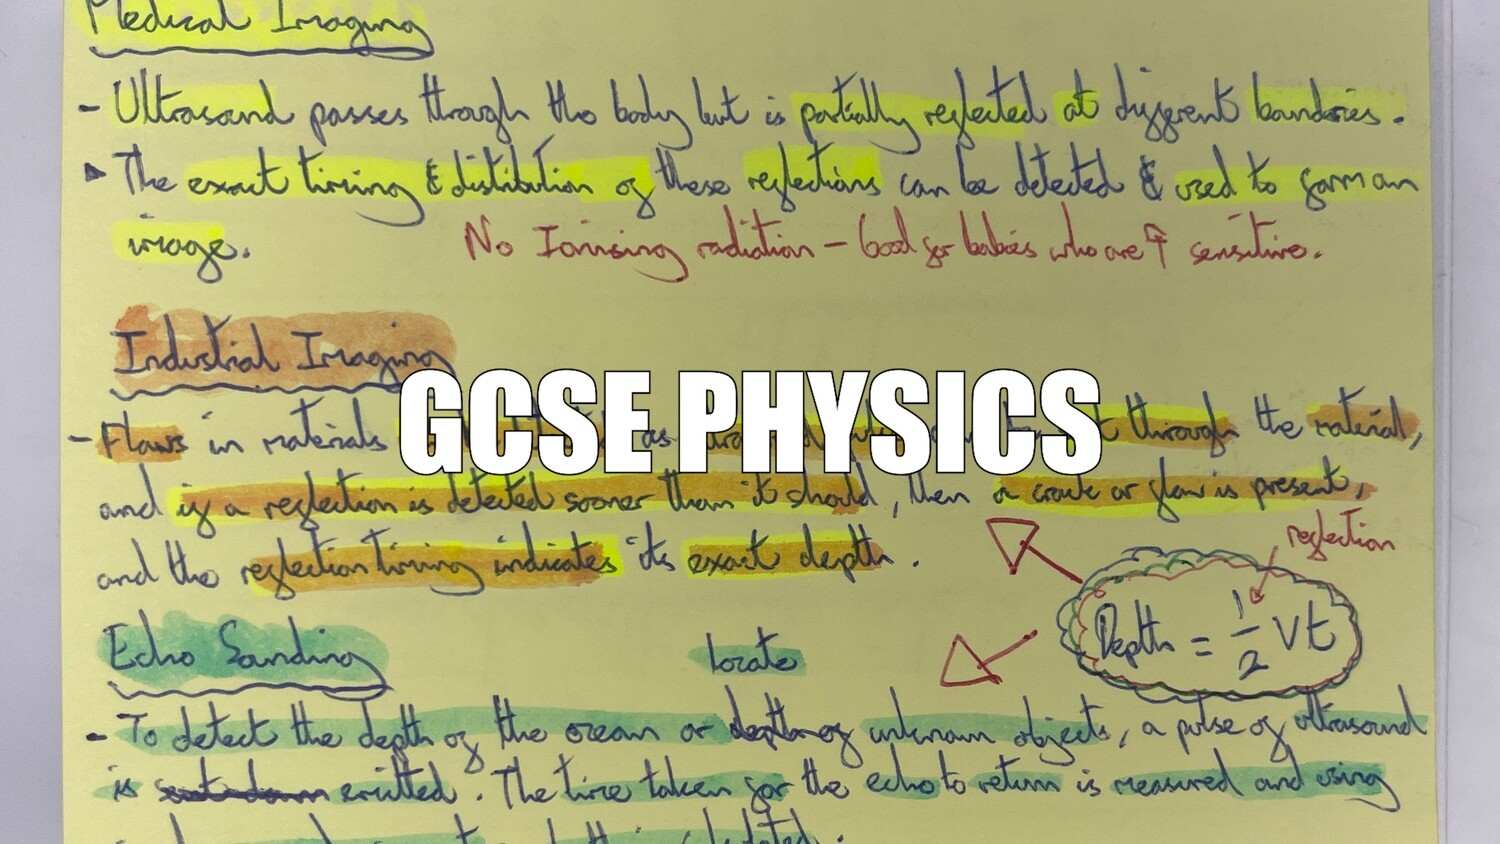 Medical Imaging
- Ultrasound passes through the body but is partially reflected at different boundaries.
The exact timing & distribution of these reflections can be detected & used to form an
image.
No Ionising radiation - Good for babies who are ↑ sensitive.
Industrial Imaging
GCSE PHYSICS
- Flaws in materials as through the material,
and if a reflection is detected sooner than it should, then a crack or flaw is present,
and the reflection timing indicates its exact depth.
reflection
Depth = 1/2 Vt
Echo Sounding
locate
- To detect the depth of the ocean or depth of unknown objects, a pulse of ultrasound
is sent down emitted. The time taken for the echo to return is measured and using